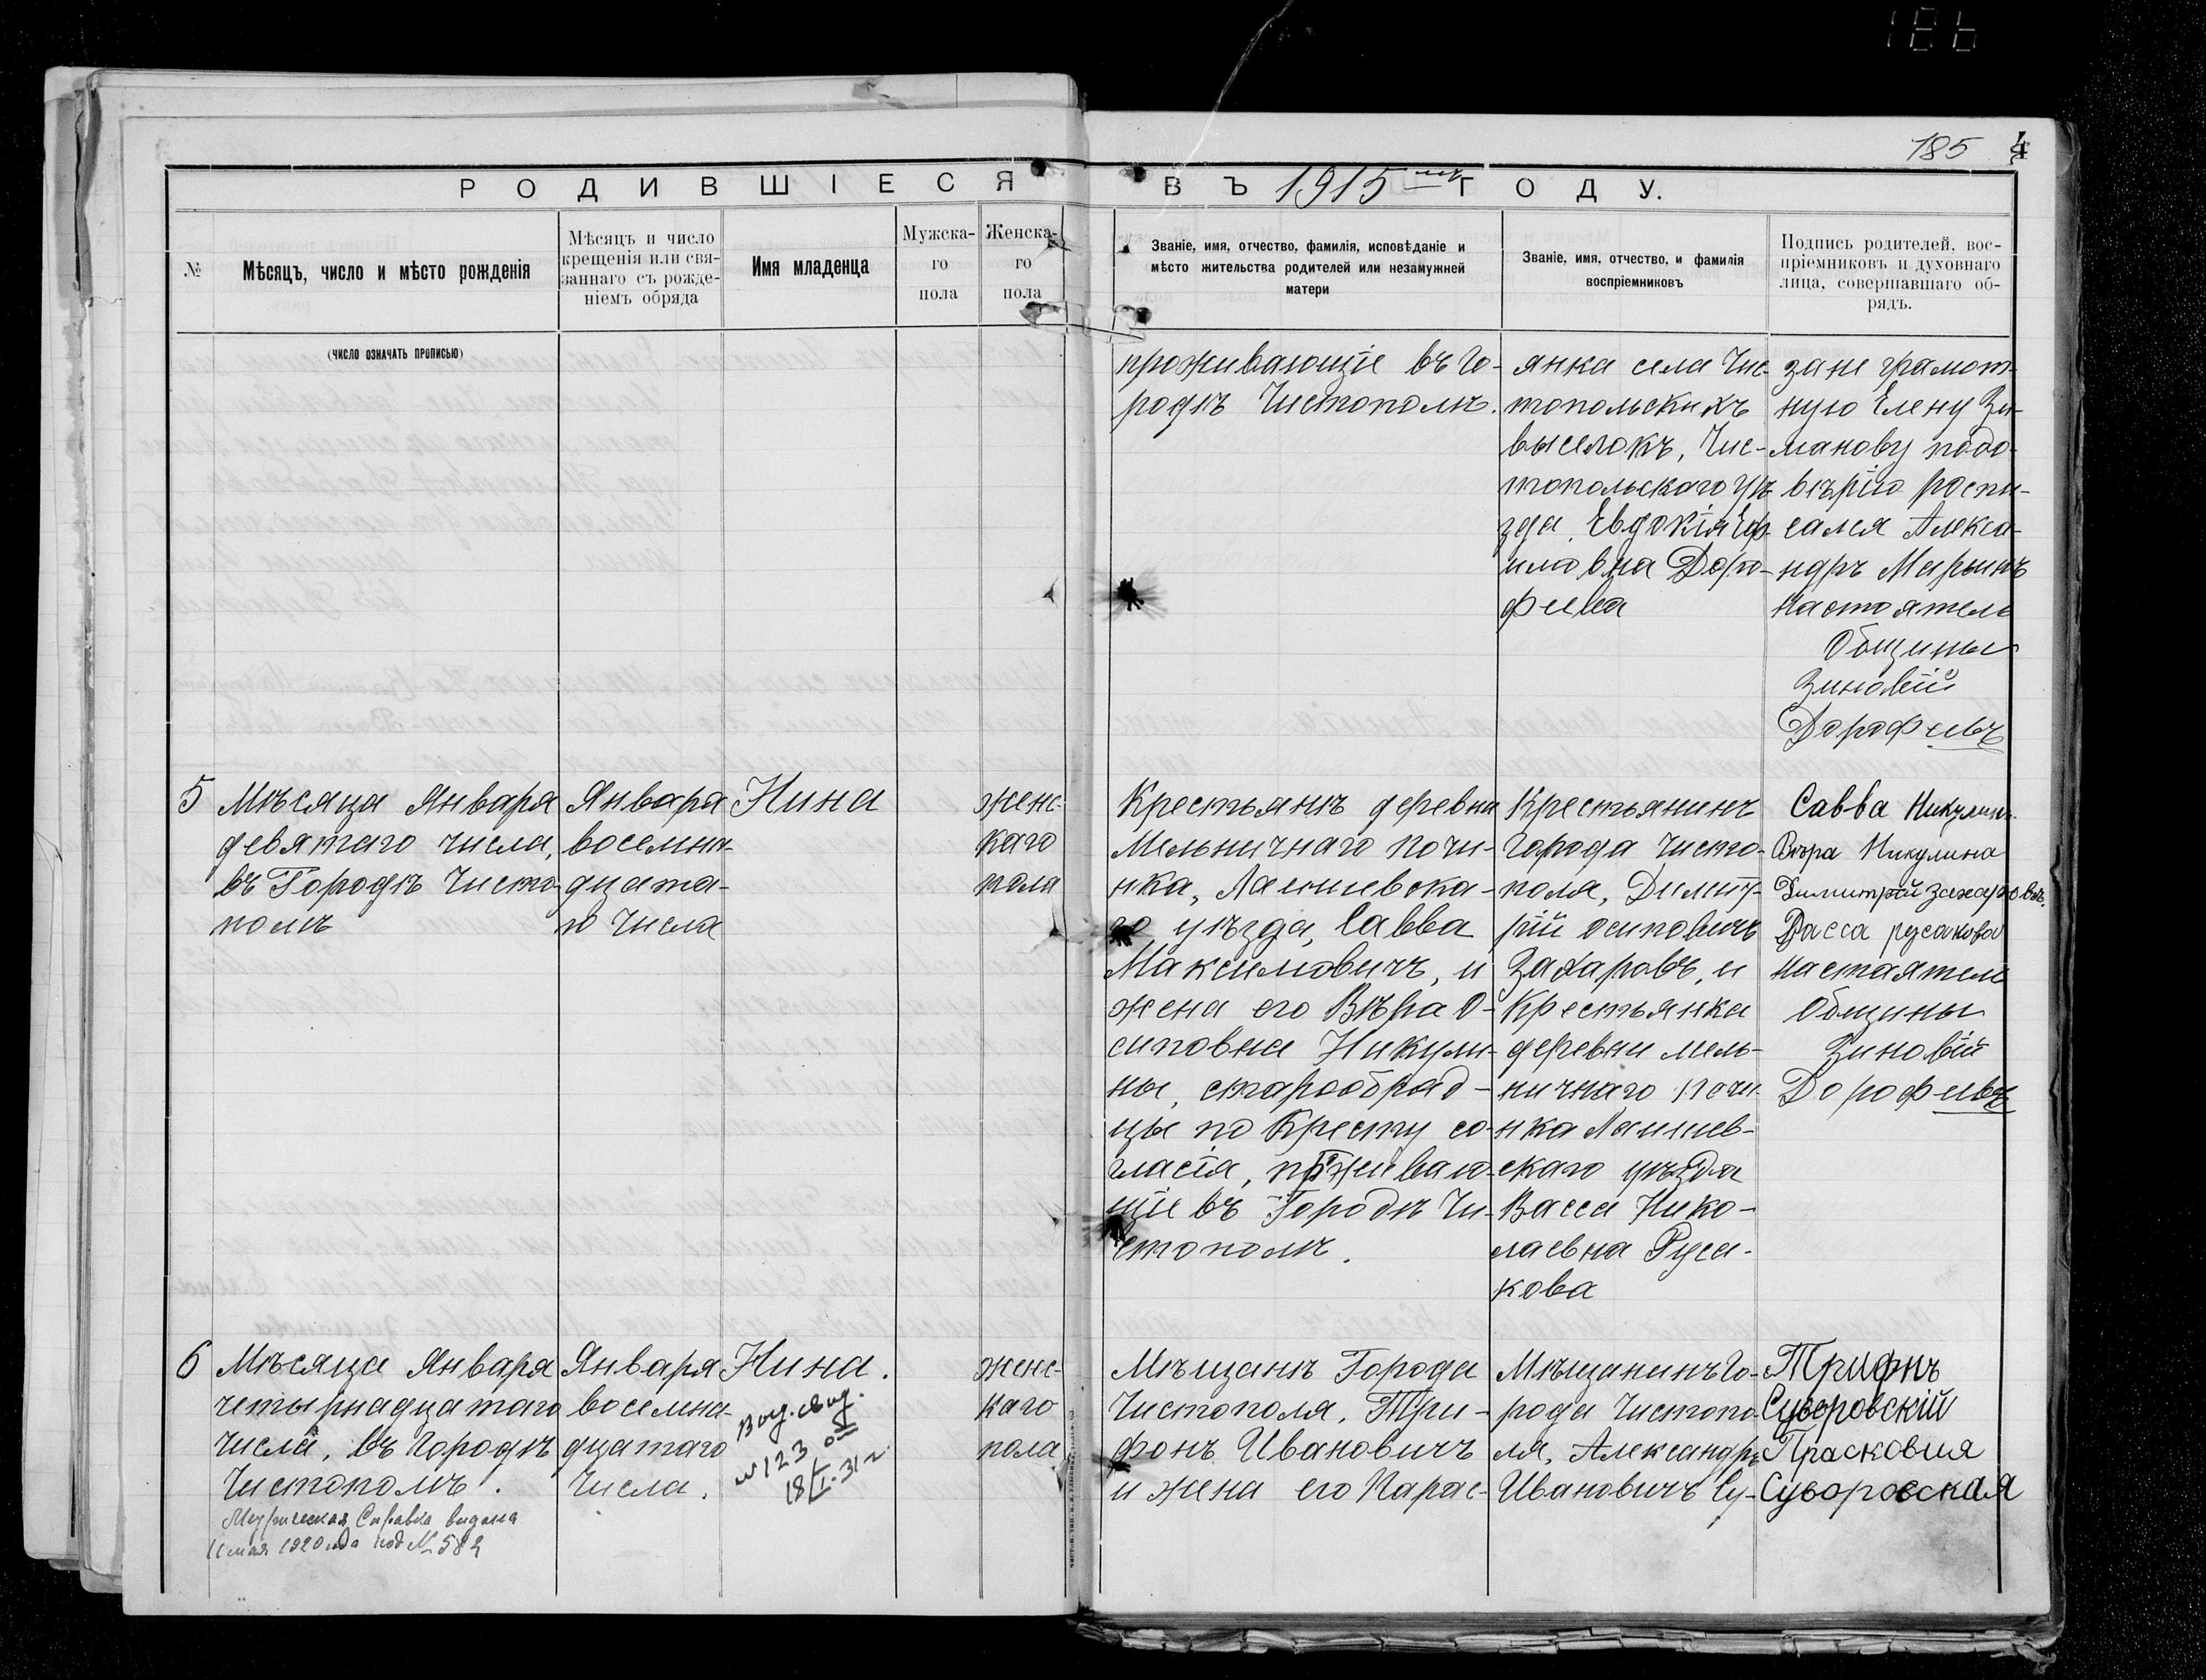 186
185 4
РОДИВШІЕСЯ ВЪ 1915 ГОДУ.
№
Мѣсяцъ, число и мѣсто рожденія
(число означать прописью)
Мѣсяцъ и число
крещенія или свя-
заннаго съ рожде-
ніемъ обряда
Имя младенца
Мужска-
го
пола
Женска-
го
пола
Званіе, имя, отчество, фамилія, исповѣданіе и
мѣсто жительства родителей или незамужней
матери
Званіе, имя, отчество, и фамилія
воспріемниковъ
Подпись родителей, вос-
пріемниковъ и духовнаго
лица, совершавшаго об-
рядъ.
проживающіе въ Го-
родѣ Чистополѣ.
янка села Чис-
топольскихъ
выселокъ, Чис-
топольскаго уѣ
зда, Евдокія Еф-
имовна Доро-
феева
за не грамот-
ную Елену Зи-
манову подо-
вѣрію роспи-
сался Алекса-
ндръ Марынъ
Настоятель
Общины
Зиновій
Дорофеевъ
5
Мѣсяца Января
девятаго числа,
въ Городѣ Чисто-
полѣ
Января
восемна-
дцата-
го Числа
Нина
женс-
каго
пола
Крестьянъ деревни
Мельничнаго Почи-
нка, Лаишевска-
го уѣзда, Савва
Максимовичъ, и
жена его Вѣра О-
сиповна Никули-
ны, старообряд-
цы по Кресту со-
гласія, проживаю-
щіе въ Городѣ Чи-
стополѣ.
Крестьянинъ
Города Чисто-
поля, Димит-
рій Осиповичъ
Захаровъ, и
Крестьянка
деревни мель-
ничнаго Почи-
нка Лаишев-
скаго уѣзда
Васса Нико-
лаевна Руса-
кова
Савва Никулинъ
Вѣра Никулина
Димитрій Захаровъ.
Васса русакова
Настаятель
Общины
Зиновій
Дорофеевъ
6
Мѣсяца Января
четырнадцатаго
Числа, въ Городѣ
Чистополѣ.
Метрическая Справка выдана
11 мая 1920 года под № 582
Января
восемна-
дцатаго
Числа.
Нина.
Выд. свид.
№ 123
18/I-31 г
женс-
каго
пола
Мѣщанъ Города
Чистополя, Три-
фонъ Ивановичъ
и жена его Парас-
Мѣщанинъ Го-
рода Чистопо-
ля, Александръ
Ивановичъ Су-
Трифнъ
Суворовскій
Прасковия
Суворовская